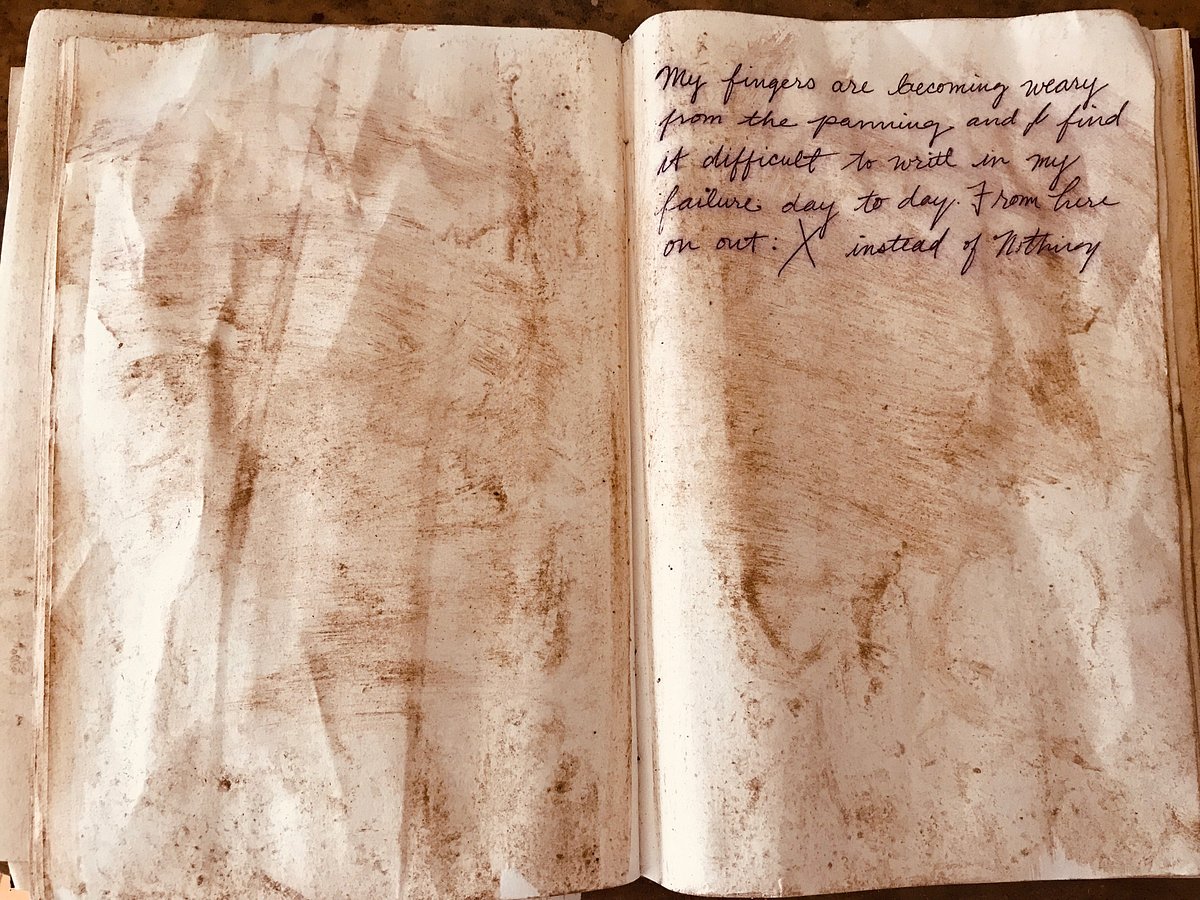 My fingers are becoming weary
from the panning and I find
it difficult to write in my
failure day to day. From here
on out: X instead of Nothing